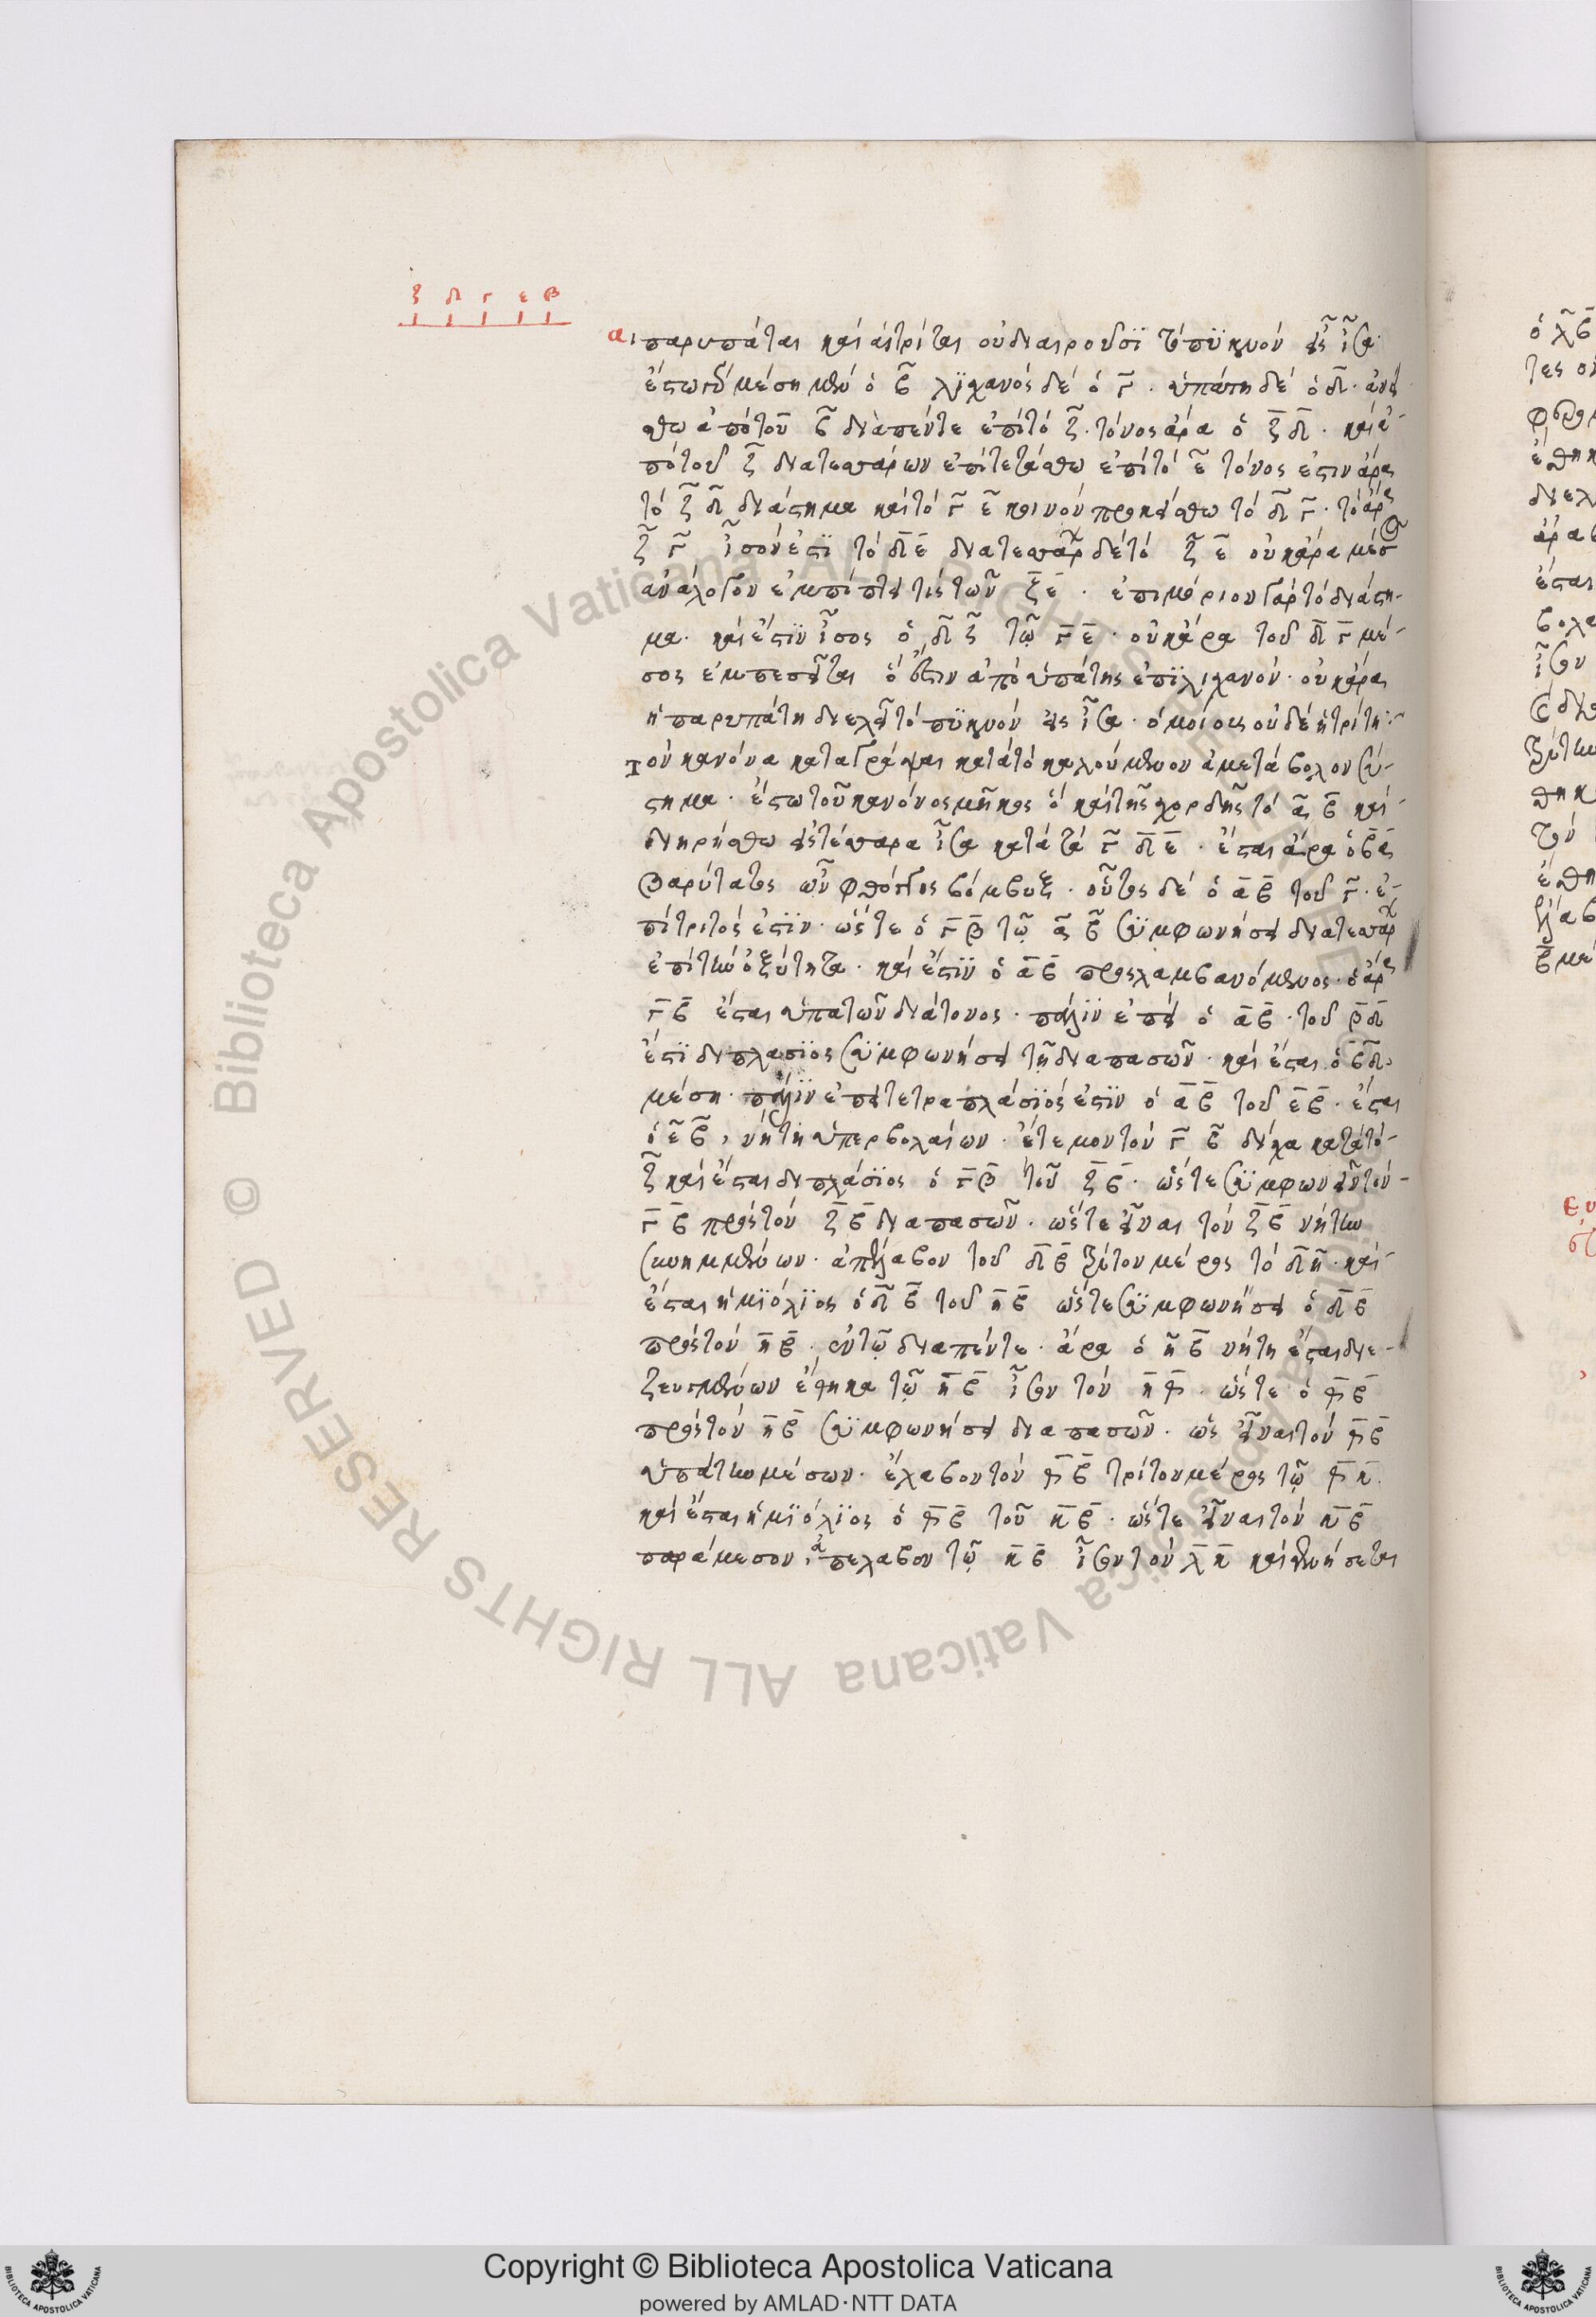 ξ δ γ ε β
αι παρυπάται καὶ αἱ τρίται οὐ διαιροῦσϊ τὸ πϋκνὸν εἰς ἶσα·
ἔστω γὰρ μέση μὲν ὁ β λϊχανὸς δὲ ὁ γ · ὑπάτη δὲ ὁ δ · ἀνεί
σθω ἀπὸ τοῦ β διὰ πέντε ἐπὶ τὸ ζ · τόνος ἄρα ὁ ζ δ · καὶ ἀ-
πὸ τοῦ ζ διατεσσάρων ἐπιτετάσθω ἐπὶ τὸ ε τόνος ἐστιν ἄρα
τὸ ζ δ διάστημα καὶ τὸ γ ε κοινὸν προκείσθω τὸ δ γ · τὸ ἄρα
ζ γ ἶσον ἐστϊ τὸ δ ε διατεσσάρ δὲ τὸ ζ ε οὐκ ἄρα μέσος
ἀνάλογον ἐμπίπτει τις τῶν ζ ε · ἐπιμόριον γὰρ τὸ διάστη-
μα · καὶ ἐστϊν ἶσος ὁ δ ζ τῷ γ ε · οὐκ ἄρα τοῦ δ γ μέ-
σος ἐμπεσεῖται ὅ ἐστιν ἀπὸ ὑπάτης ἐπϊ λιχανόν · οὐκ ἄρα
ἡ παρυπάτη διελεῖ τὸ πϋκνὸν εἰς ἶσα · ὁμοίως οὐδὲ ἡ τρίτη:-
Τον κανόνα καταγράψαι κατὰ τὸ καλούμενον ἀμετάβολον σύ-
στημα · ἔστω τοῦ κανόνος μῆκος ὃ καὶ τῆς χορδῆς τὸ α β καὶ
διῃρήσθω εἰς τέσσαρα ἶσα κατὰ τὰ γ δ ε · ἔσται ἄρα ὁ β α
βαρύτατος ὢν φθόγγος βόμβυξ · οὗτος δὲ ὁ α β τοῦ γ · ἐ-
πίτριτός ἐστϊν · ὥστε ὁ γ β τῷ α β συμφωνήσει διατεσσάρ
ἐπὶ τὴν ὀξύτητα · καὶ ἐστϊν ὁ α β προσλαμβανόμενος · ὁ ἄρα
γ β ἔσται ὑπατῶν διάτονος · πάλϊν ἐπεὶ ὁ α β · τοῦ β δ
ἐστϊ διπλασϊος συμφωνήσει τῇ διαπασῶν · καὶ ἔσται ὁ β δ
μέση · πάλϊν ἐπεὶ τετραπλάσϊός ἐστϊν ὁ α β τοῦ ε β · ἔσται
ὁ ε β, νήτη ὑπερβολαίων · ἔτεμον τὸν γ β δίχα κατὰ τὸ
ζ καὶ ἔσται διπλάσϊος ὁ γ β τοῦ ζ β · ὥστε συμφωνεῖν τὸν
γ β πρὸς τὸν ζ β διαπασῶν · ὥστε εἶναι τὸν ζ β νήτην
συνημμένων · ἀπέλαβον τοῦ δ β τρίτον μέρος τὸ δ η · καὶ
ἔσται ἡμϊόλϊος ὁ δ β τοῦ η β ὥστε συμφωνήσει ὁ δ β
πρὸς τὸν η β · ἐν τῷ διαπέντε · ἄρα ὁ η β νήτη ἔσται διε-
ζευγμένων ἔθηκα τῷ η β ἶσον τὸν η θ · ὥστε ὁ θ β
πρὸς τὸν η β συμφωνήσει διαπασῶν · ὡς εἶναι τὸν θ β
ὑπάτην μέσων · ἔλαβον τὸν θ β τρίτον μέρος τῷ θ κ
καὶ ἔσται ἡμϊόλϊος ὁ θ β τοῦ κ β · ὥστε εἶναι τὸν κ β
παράμεσον, ἀπελαβον τῷ κ β ἶσον τὸν λ κ καὶ γενήσεται
Copyright © Biblioteca Apostolica Vaticana
powered by AMLAD·NTT DATA